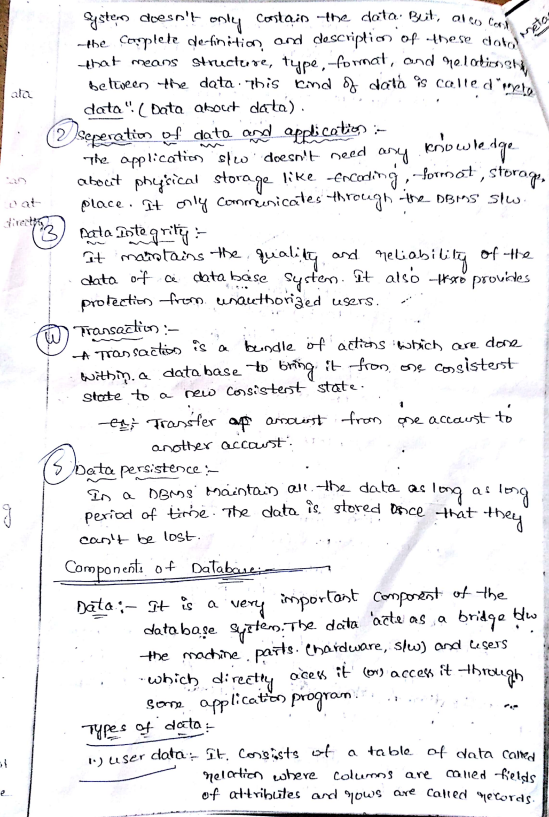 System doesn't only contain the data. But, also
the complete definition and description of these data
that means structure, type, format, and relationship
between the data. This kind of data is called "meta
data". (Data about data).
② Seperation of data and application :-
The application s/w doesn't need any knowledge
about physical storage like encoding, format, storage,
place. It only communicates through the DBMS s/w.
③ Data Integrity :-
It maintains the quality and reliability of the
data of a database system. It also provides
protection from unauthorized users.
④ Transaction :-
A Transaction is a bundle of actions which are done
within a database to bring it from one consistent
state to a new consistent state.
ex:- Transfer amount from one account to
another account.
5 Data persistence :-
In a DBMS Maintain all the data as long as long
period of time. The data is stored once that they
can't be lost.
Components of Database:-
Data :- It is a very important component of the
database system. The data acts as a bridge b/w
the machine parts (hardware, s/w) and users
which directly acess it (or) access it through
some application program.
Types of data :-
1.) user data :- It consists of a table of data called
relation where columns are called fields
of attributes and rows are called records.